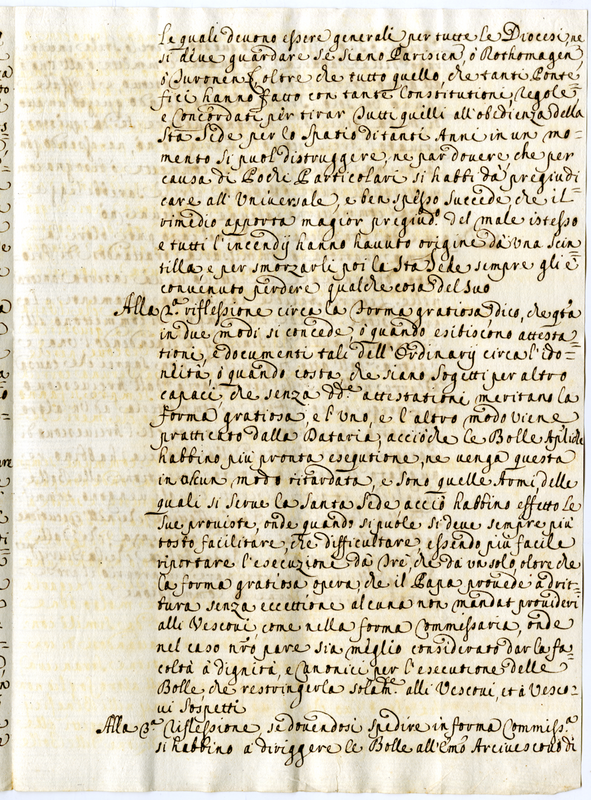 le quali devono essere generali per tutte le Diocesi, ne
si deve guardare se siano Parisien, ò Rothomagen,
ò Turonen, oltre che tutto quello, che tanti Ponte=
fici hanno fatto con tante Constitutioni, Regole=
e Concordati per tirar tutti quelli all'obedienza della
Sta Sede per lo spatio di tanti Anni in un mo=
mento si puol distruggere, ne par dovere che per
causa di Pochi Particolari si habbi da pregiudi
care all'Universale, e ben spesso succede che il=
rimedio apporta magior pregiud.º del male istesso
e tutti l'incendij hanno havuto origine da una scin
tilla e per smorzarli poi la Sta Sede sempre gli è
convenuto perdere qualche cosa del suo
Alla 2.ª riflessione circa la forma gratiosa dico, che qta
in due modi si concede, ò quando esibiscono attesta=
tioni, e documenti tali dell'Ordinarij circa l'ido=
neità, ò quando costa, che siano sogetti per altro
capaci, che senza dd.e attestationi meritano la
forma gratiosa, e l'uno, e l'altro modo viene
pratticato dalla Dataria, acciòche le Bolle Apliche
habbino più pronta esegutione, ne venga questa
in alcun modo ritardata, e sono quelle Armi delle
quali si serve la Santa Sede acciò habbino effetto le
sue proviste, onde quando si puole si deve sempre più
tosto facilitare, che difficultare, essendo più facile
riportare l'esecuzione da tre, che da un solo, oltre che
la forma gratiosa opera, che il Papa provede adrit=
tura senza eccettione alcuna non mandat provideri
alli Vescovi, come nella forma Commissaria, onde
nel caso nrõ pare sia meglio considerato dar la fa
coltà à dignità, e Canonici per l'esecutione delle
Bolle, che restringerla solam.e alli Vescovi, et à Vesco=
vi sospetti
Alla 3.ª Riflessione, se dovendosi spedire in forma Commiss.ª
si habbino a diriggere le Bolle all'Emõ Arcivescovo di